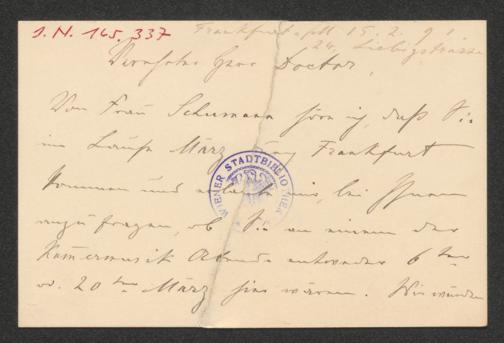 J. N. 165.337
Frankfurt a/M 15. 2. 91.
24. Liebigstrasse
Verehrter Herr Doctor,
Von Frau Schumann höre ich, daß Sie
im Laufe März nach Frankfurt
kommen und erlaube mir, bei Ihnen
anzufragen, ob Sie an einem der
Kammermusik Abende entweder 6ten
od. 20ten März hier wären. Wir würden
WIENER STADTBIBLIOTHEK